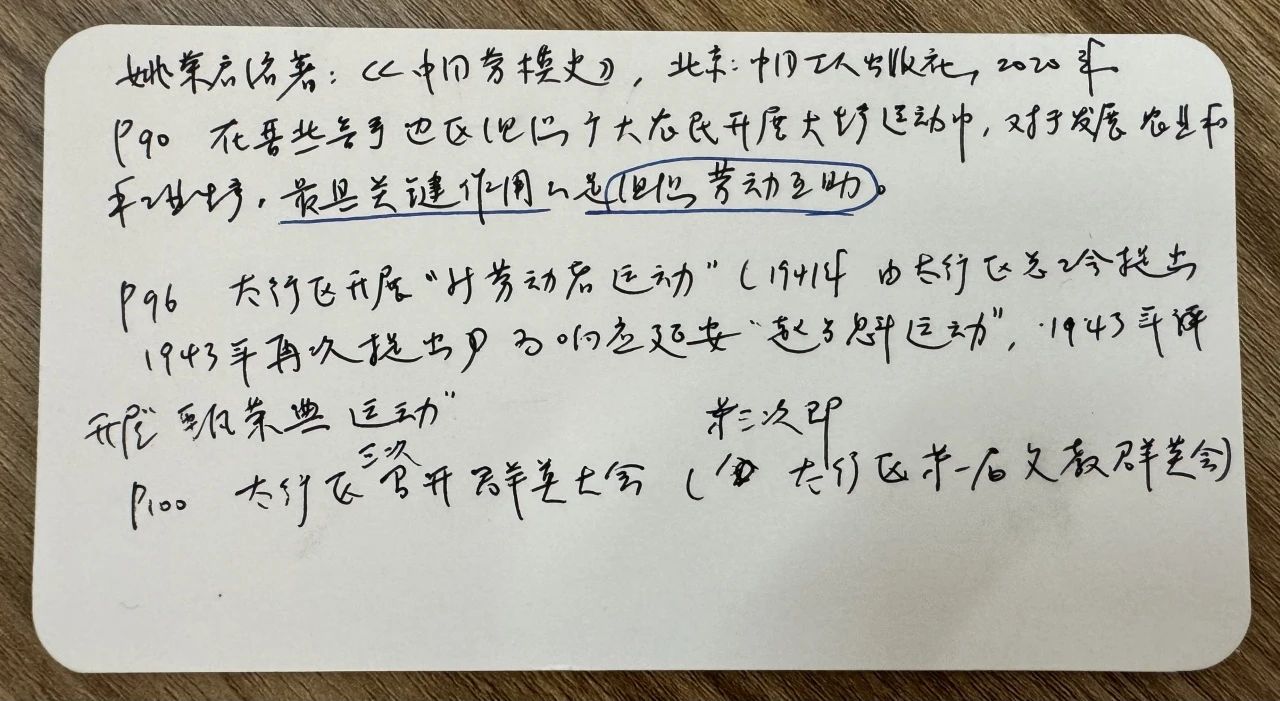 姚荣启编著:《中国劳模史》,北京:中国工人出版社,2020年
P90 在晋北晋 边区组织广大农民开展大生产运动中,对于发展农业和
手工业生产,最具关键作用的是组织劳动互助。
P96 太行区开展“新劳动者运动”(1941年由太行区总工会提出
1943年再次提出)为响应延安“赵占魁运动”,1943年评
开展“甄荣典运动”
P100 太行区三次召开群英大会(第三次即太行区第一届文教群英会)